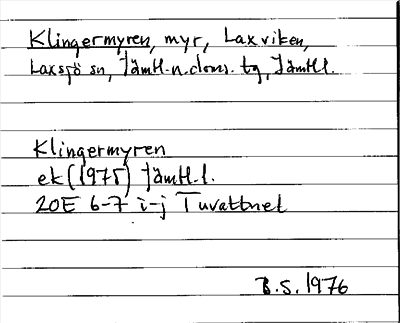 Klingermyren, myr, Laxviken,
Laxsjö sn, Jämtl. n. doms. tg, Jämtl l.
Klingermyren
ek (1975) Jämtl. l.
20E 6-7 i-j Tuvattnet
B.S. 1976